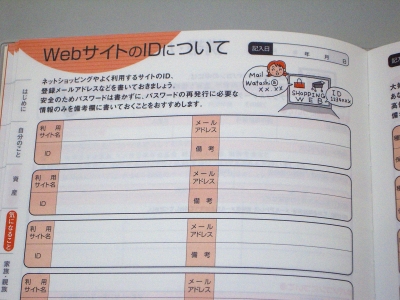 WebサイトのIDについて
記入日
年 月 日
ネットショッピングやよく利用するサイトのID、
登録メールアドレスなどを書いておきましょう。
安全のためパスワードは書かずに、パスワードの再発行に必要な
情報のみを備考欄に書いておくことをおすすめします。
Mail
Watashi@
xx.xx
SHOPPING
WEB
ID
はじめに
自分のこと
資産
気になること
家族・親族
利用
サイト名
メール
アドレス
ID
備考
利用
サイト名
メール
アドレス
ID
備考
利用
サイト名
メール
アドレス
ID
備考
利用
サイト名
メール
アドレス